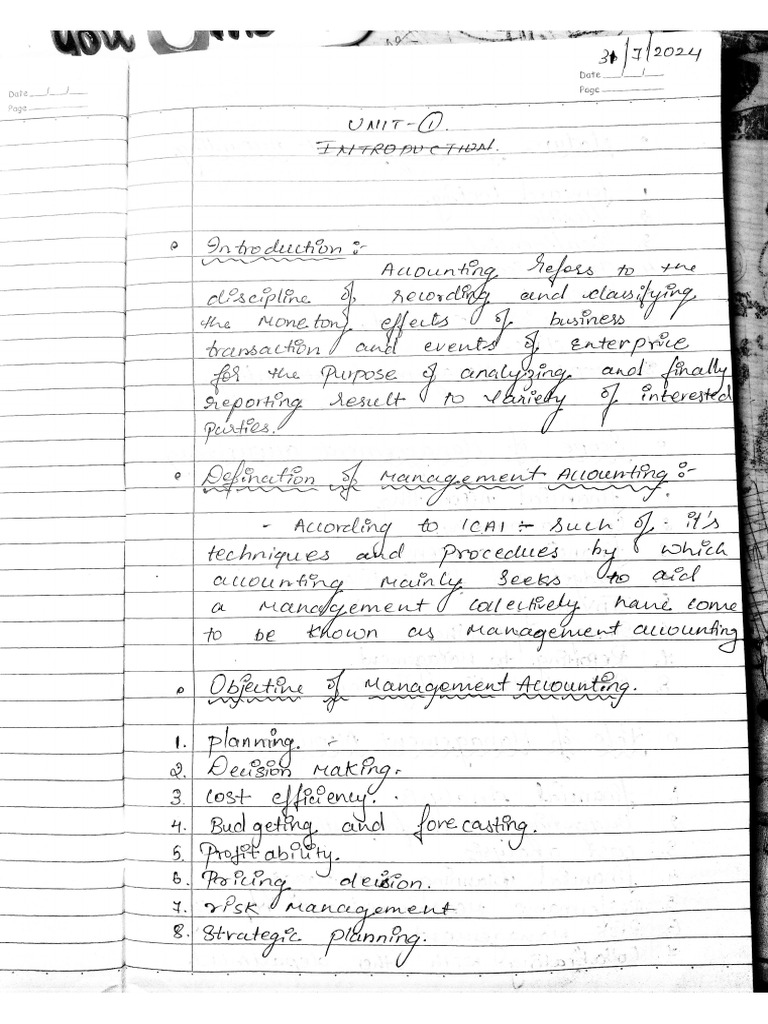 you
31/7/2024
Date __/__/__
Page ________
Date __/__/__
Page ________
UNIT-①.
INTRODUCTION.
Introduction :-
Accounting refers to the
discipline of recording and classifying
the Monetory effects of business
transaction and events of Enterprice
for the Pupose of analyzing and finally
reporting result to variety of interested
parties.
Defination of Management Accounting :-
- According to ICAI :- Such of it's
techniques and Procedues by which
accounting mainly seeks to aid
a management collectively have come
to be known as Management accounting
Objective of Management Accounting.
1. planning. -
2. Decision Making.
3. Cost efficiency.
4. Budgeting and forecasting.
5. Profitability.
6. Pricing decision.
7. risk Management
8. Strategic planning.